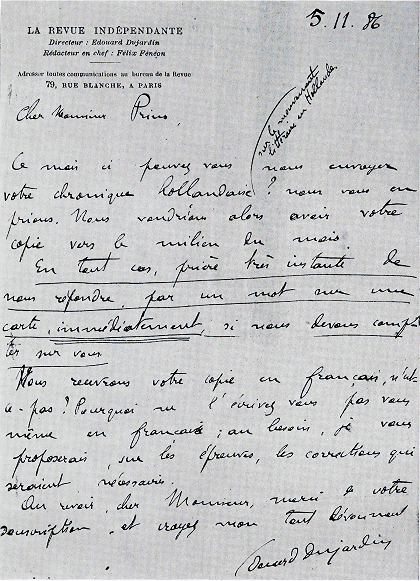 5.11.86
LA REVUE INDÉPENDANTE
Directeur : Edouard Dujardin
Rédacteur en chef : Félix Fénéon
Adresser toutes communications au bureau de la Revue
79, RUE BLANCHE, A PARIS
Cher Monsieur Prins,
sur le mouvement
littéraire en Hollande
Ce mois ci pouvez vous nous envoyer
votre chronique hollandaise ? nous vous en
prions. Nous voudrions alors avoir votre
copie vers le milieu du mois.
En tout cas, prière très instante de
nous répondre, par un mot sur une
carte, immédiatement, si nous devons comp
ter sur vous
Nous recevrons votre copie en français, n'est
ce-pas ? Pourquoi ne l'écrivez vous pas vous
même en français ; au besoin, je vous
proposerais, sur les épreuves, les corrections qui
seraient nécessaires.
Au revoir, cher Monsieur, merci de votre
souscription, et croyez mon tout dévouement
Edouard Dujardin